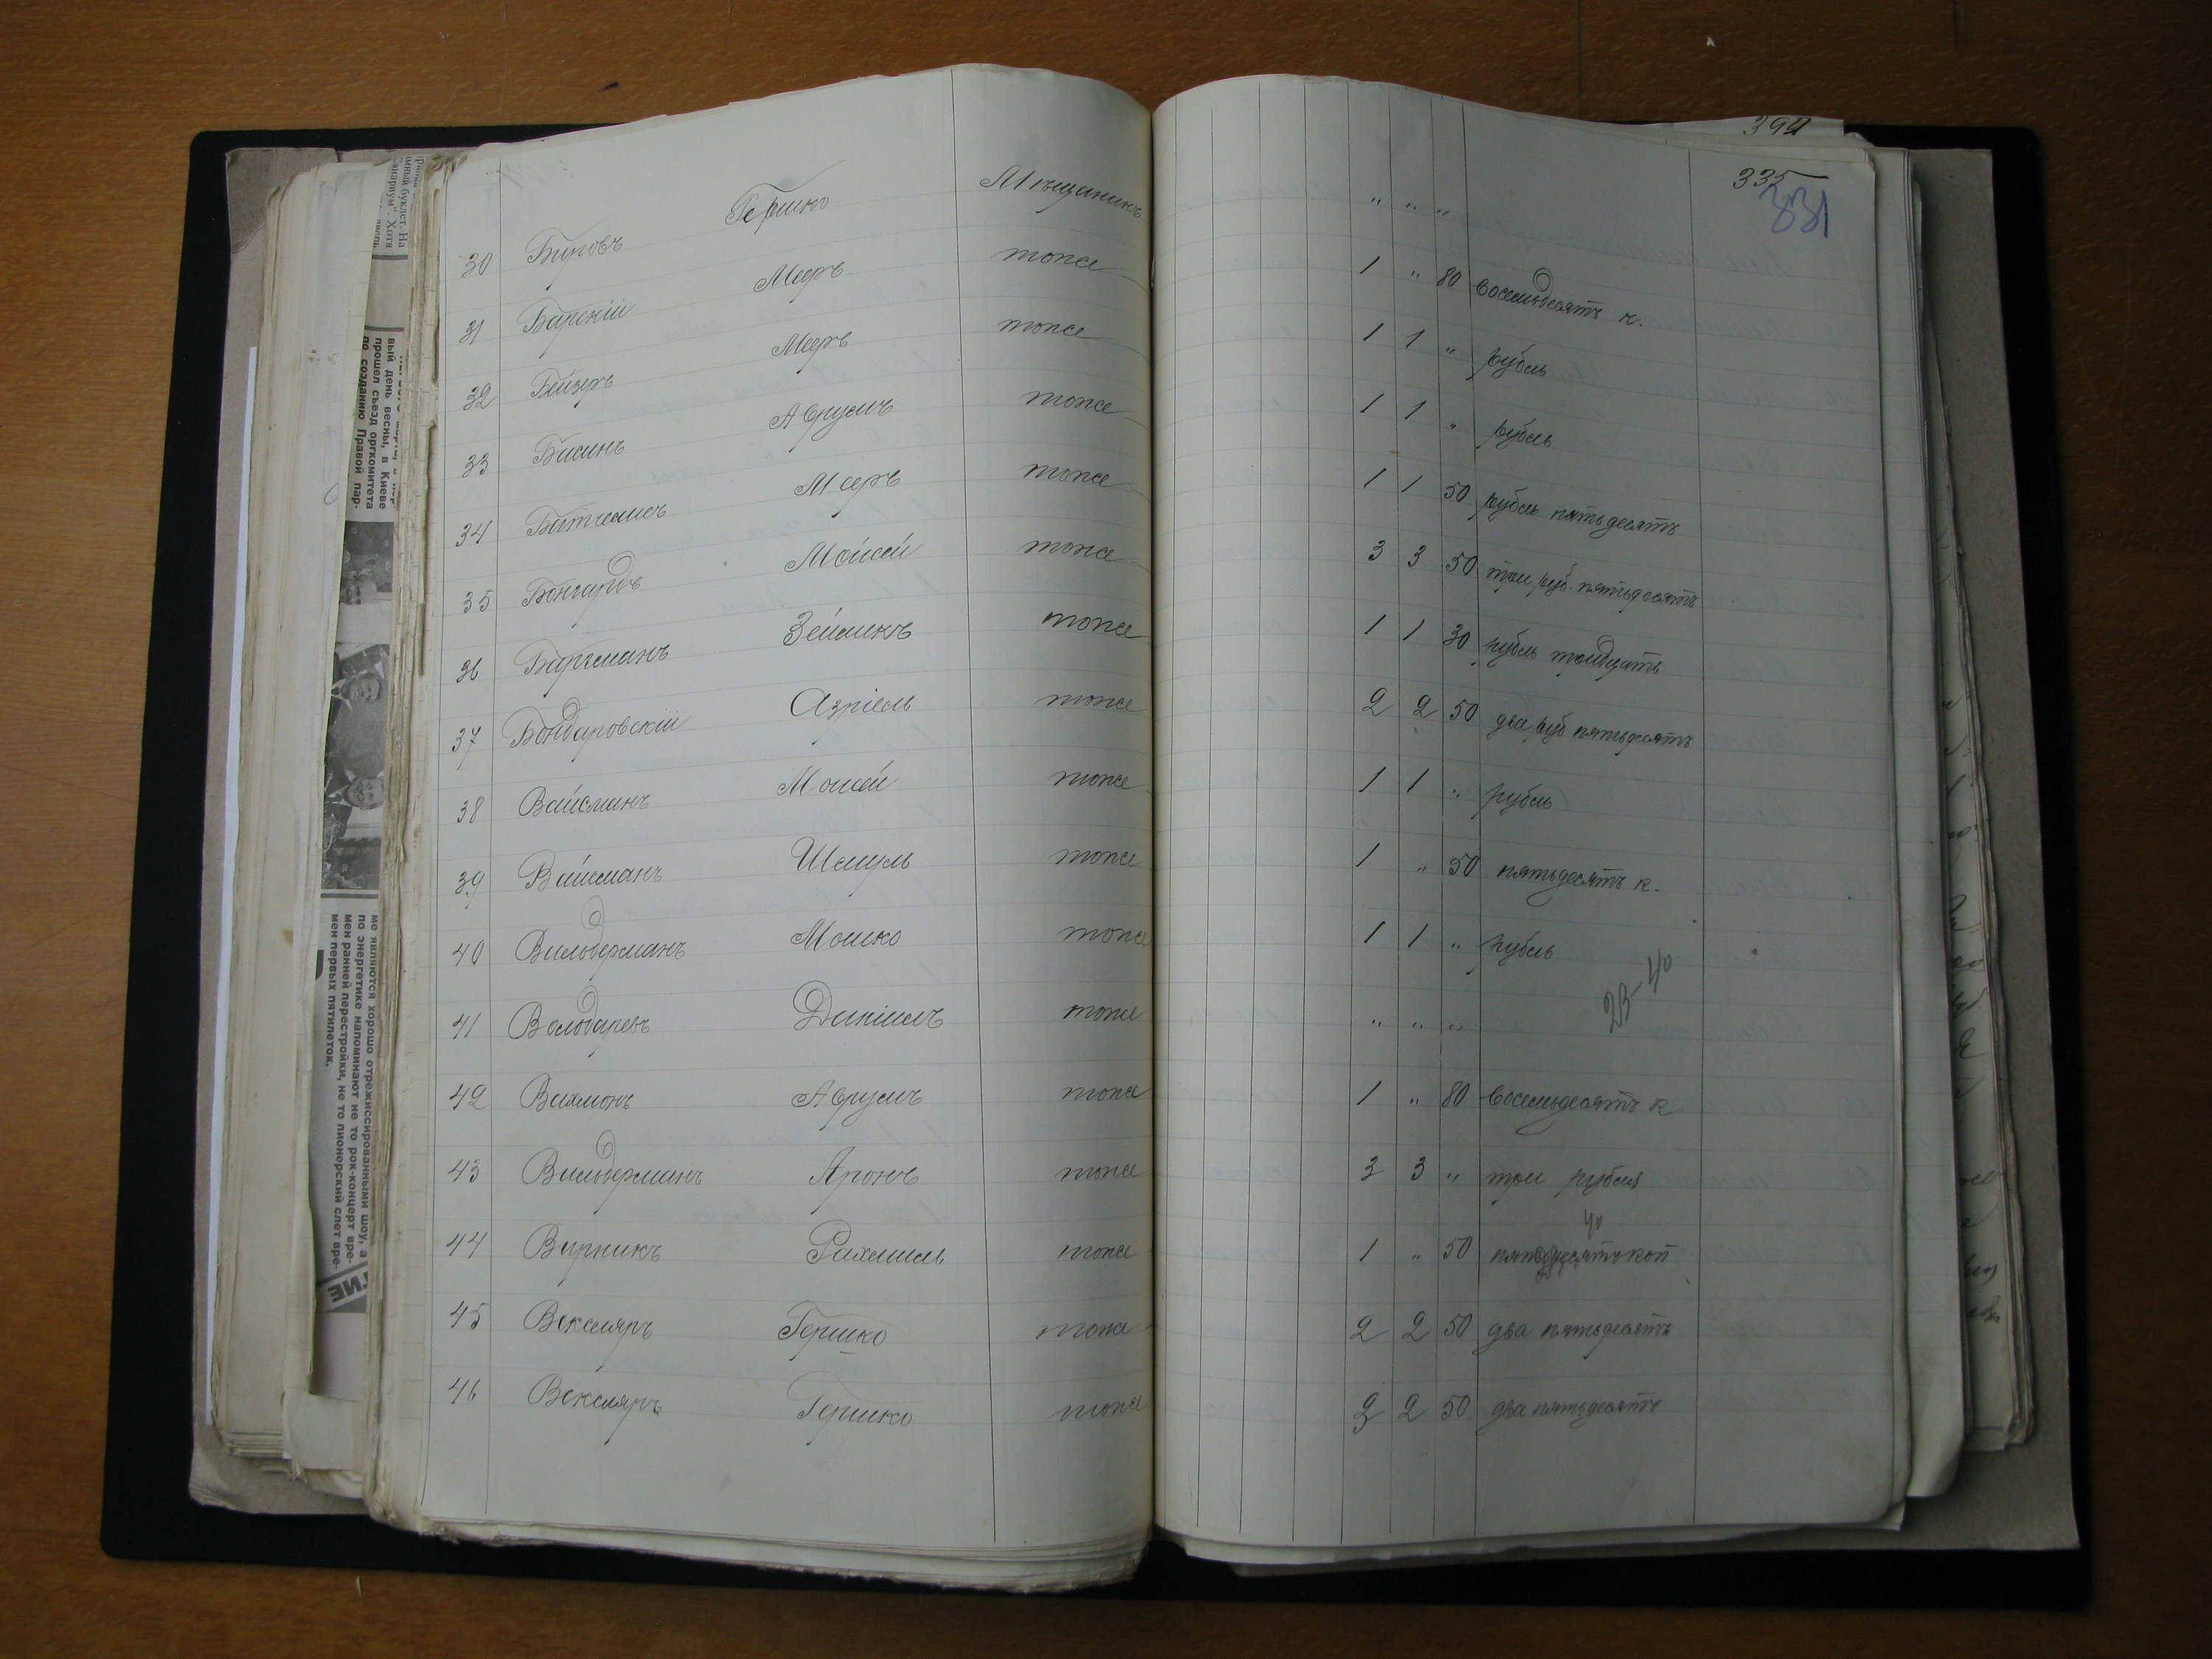 394
335
331
30 Бировъ Гершко Мѣщанинъ " " "
31 Барскій Мееръ тоже 1 " 80 восемьдесятъ к.
32 Бейзеръ Мееръ тоже 1 1 " рубль
33 Басинъ Аврумъ тоже 1 1 " рубль
34 Мееръ тоже 1 1 50 рубль пятьдесятъ
35 Бонгардъ Мойсей тоже 3 3 50 три руб. пятьдесятъ
36 Баргманъ Зейликъ тоже 1 1 30 рубль тридцать
37 Бондаровскій Азріель тоже 2 2 50 два руб пятьдесятъ
38 Вайсманъ Моисей тоже 1 1 " рубль
39 Вайсманъ Шмуль тоже 1 " 50 пятьдесятъ к.
40 Вильдерманъ Мошко тоже 1 1 " рубль
23-40
41 Володаревъ Даніилъ тоже " " "
42 Аврумъ тоже 1 " 80 восемьдесятъ к
43 Вильдерманъ Аронъ тоже 3 3 " три рубля
40
44 Варникъ Рахмиль тоже 1 " 50 пятьдесятъ коп
45 Векслярь Гершко тоже 2 2 50 два пятьдесятъ
46 Векслярь Гершко тоже 2 2 50 два пятьдесятъ
вый день весны, в Киеве
прошел съезд оргкомитета
по созданию Правой пар-
ме являются хорошо отрежиссированными шоу, а
по энергетике напоминают не то рок-концерт вре-
мен ранней перестройки, не то пионерский слет вре-
мен первых пятилеток.